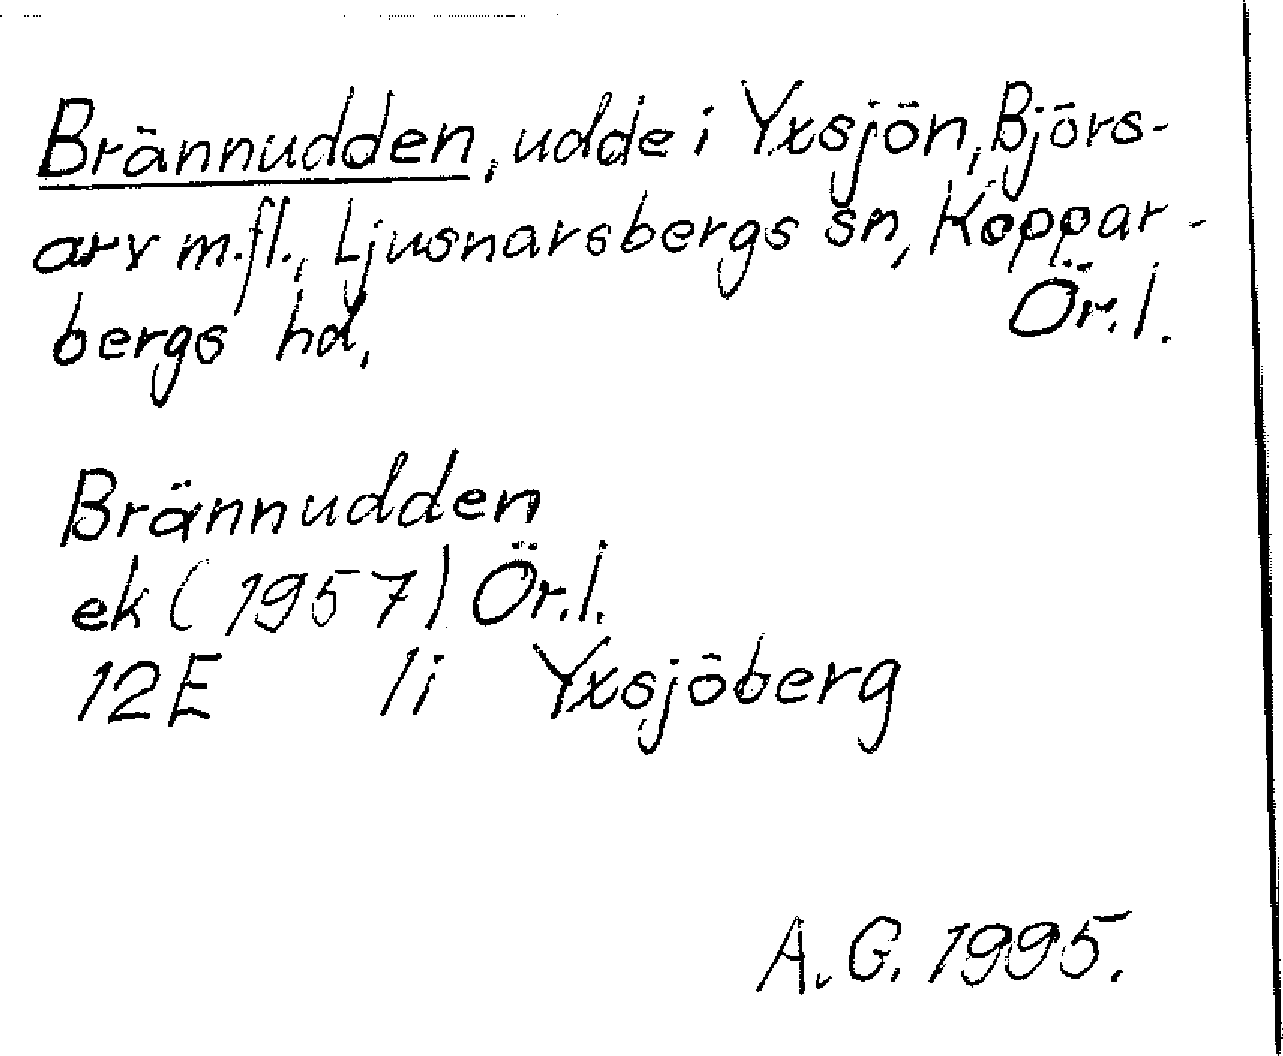 Brännudden, udde i Yxsjön, Björs-
arv m.fl., Ljusnarsbergs sn, Koppar-
bergs hd, Ör.l.
Brännudden
ek (1957) Ör.l.
12E 1i Yxsjöberg
A.G. 1995.